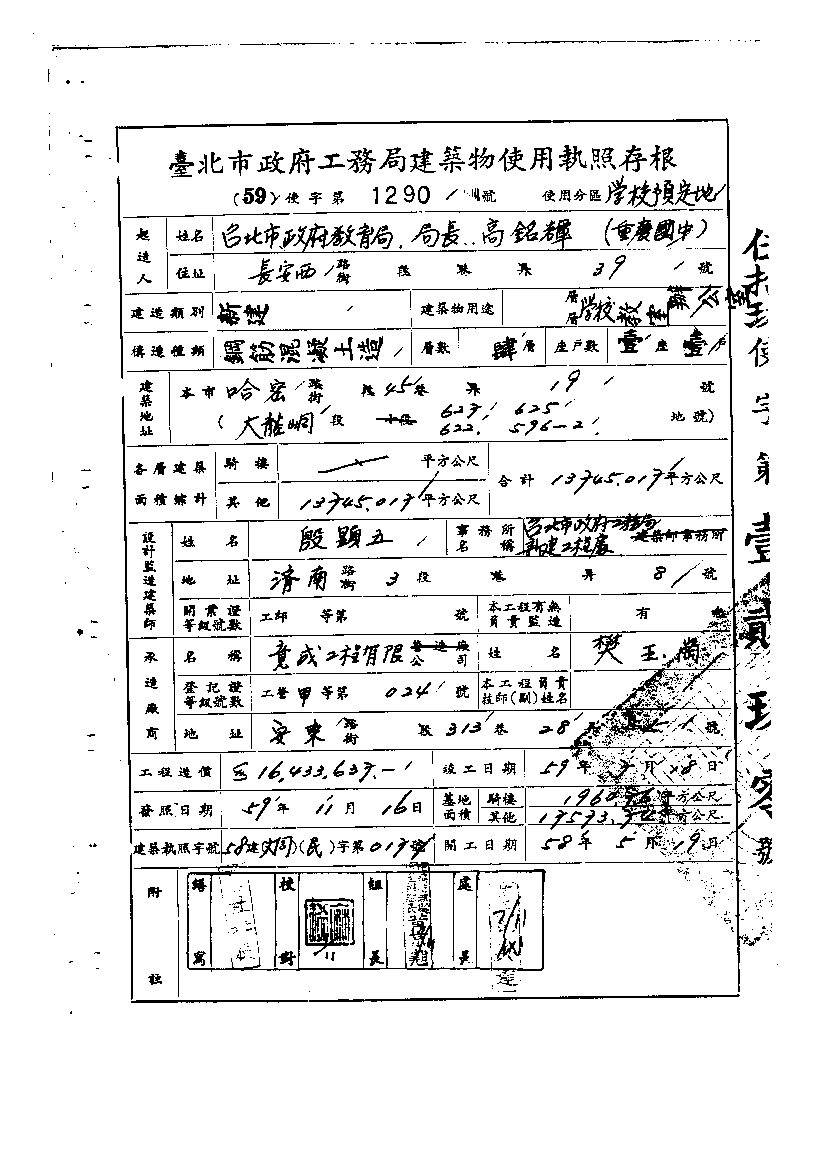 臺北市政府工務局建築物使用執照存根
(59)使字第 1290 號 使用分區 学校預定地
起造人 姓名 台北市政府教育局.局長..高銘輝 (重慶國中)
住址 長安西 路街 段 巷 弄 39 號
建造類別 新建 建築物用途 層層 学校教室 辦公室
構造種類 鋼筋混凝土造 層數 肆層 座戶數 壹座 壹戶
建築地址 本市 哈密 路街 段 45巷 弄 19 號
(大龍峒 段 623, 625 地號)
622, 596-2
各層建築面積總計 騎樓 平方公尺 合計 13745.01 平方公尺
其他 13745.01 平方公尺
設計監造建築師 姓名 殷顯五 事務所名稱 台北市政府工務局 新建工程處 建築師事務所
地址 濟南 路街 3段 巷 弄 8 號
開業證等級號數 工師 等第 號 本工程有無負責監造 有
承造廠商 名稱 竟成工程有限 營造廠公司 姓名 樊玉
登記證等級號數 工營甲等第 024 號 本工程負責技師(副)姓名
地址 安東 路街 段 313巷 28 號
工程造價 16,433,637.- 竣工日期 59年 月 8日
發照日期 59年 11月 16日 基地面積 騎樓 平方公尺
其他 平方公尺
建築執照字號 58建 (民)字第 號 開工日期 58年 5月 19日
附註 繕寫 校對 組長 處長
11
7/11
使字第壹貳玖零號